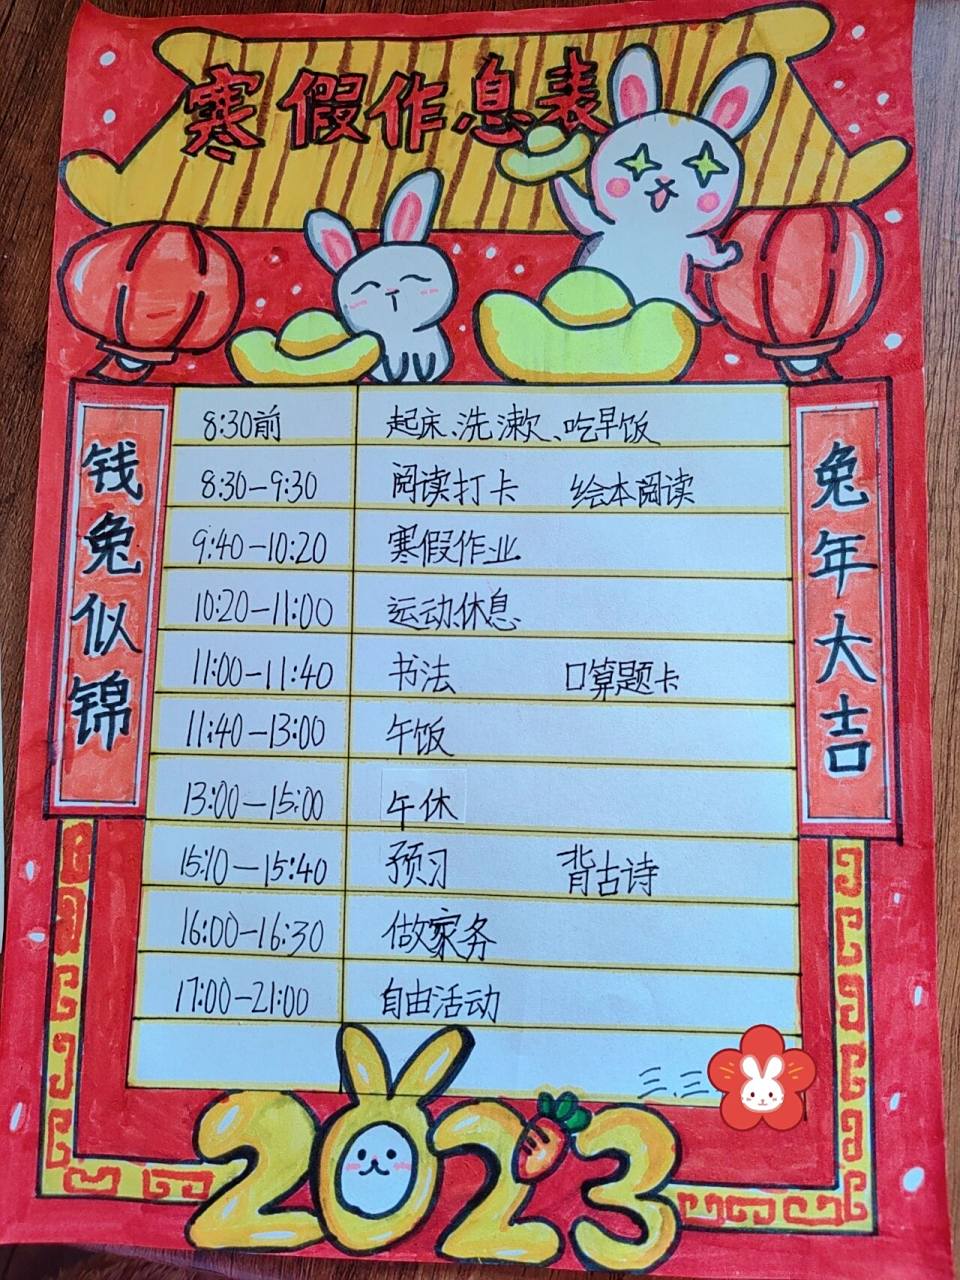 寒假作息表
钱兔似锦
兔年大吉
8:30前 起床、洗漱、吃早饭
8:30-9:30 阅读打卡 绘本阅读
9:40-10:20 寒假作业
10:20-11:00 运动、休息
11:00-11:40 书法 口算题卡
11:40-13:00 午饭
13:00-15:00 午休
15:10-15:40 预习 背古诗
16:00-16:30 做家务
17:00-21:00 自由活动
三.三
2023